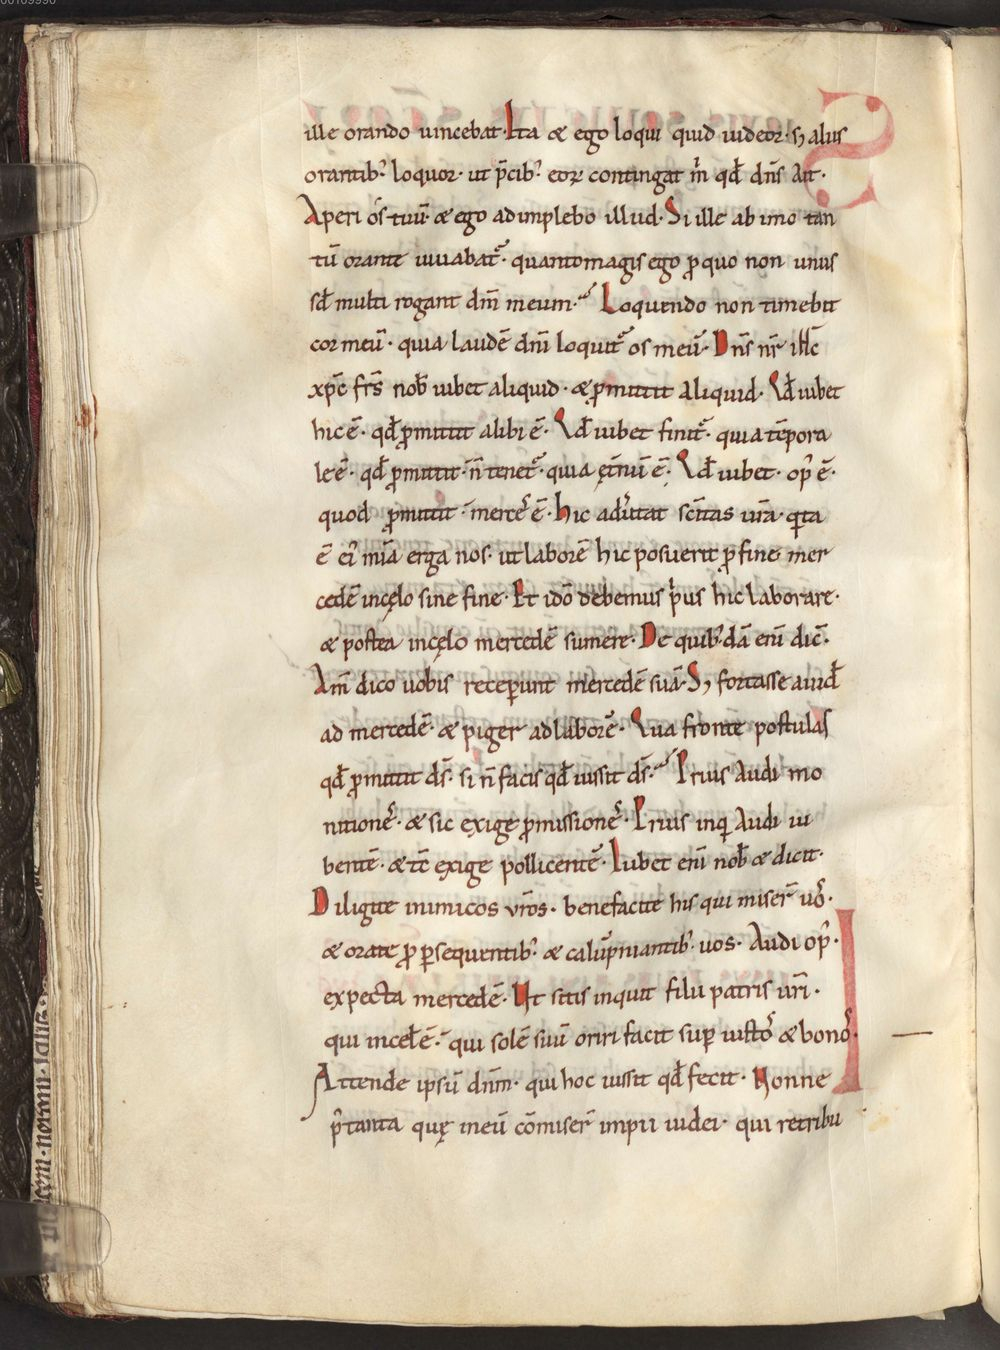 ille orando uincebat· Ita & ego loqui quid uideor· Si alius
orantib; loquor· ut p̄cib; eoꝝ contingat m̄ qđ dn̄s Ait·
Aperi ós tuū· & ego adimplebo illud· Si ille ab imo tan
tū orante iuuabat᷑· quantomagis ego ꝓ quo non unus
sđ multi rogant dn̄m meum· Loquendo non timebit
cor meū· quia laudē dn̄i loquit᷑ os meū· Dn̄s nr̄ ihc̄
xp̄c fr̄s nob̄ iubet aliquid· & ꝓmittit Aliquid· Qđ iubet
hic ē· qđ ꝓmittit alibi ē· Qđ iubet finit᷑· quia tēpora
le ē· qđ ꝓmittit· n̄ tenet᷑· quia ęt̄nū ē· Qđ iubet· op᷒ ē·
quod ꝓmittit· mercē᷒ ē· hic aduertat sc̄itas ur̄a· qͣta
ē ei᷒ mīa erga nos· ut laborē hic posuerit ꝓ fine· mer
cedē incęlo sine fine· Et idō debemus pͥus hic laborare·
& postea incęlo mercedē sumere· De quib;dā enī dic̄·
Am̄ dico uobis receꝑunt mercedē suā· Si fortasse auid᷒
ad mercedē· & piger ad laborē· Qua fronte postulas
qđ ꝓmittit ds̄· si n̄ facis qđ iussit ds̄· Prius Audi mo
nitionē᷒· & sic exige ꝓmissionē᷒· Prius inqͥ Audi iu
bentē· & tc̄ exige pollicentē· Iubet enī nob̄ & dicit·
Diligite inimicos vr̄os· benefacite his qui miser᷑ uo᷒·
& orate ꝓ ꝑsequentib;· & calūpniantib; uos· Audi op᷒·
expecta mercedē· Ut sitis inquit filii patris uri·
qui incęł ē· qui solē suū oriri facit suꝑ iusto᷒ & bono᷒·
Attende ipsū dn̄m· qui hoc iussit qđ fecit· Nonne
p᷒ tanta quę ineū cōmiser᷑ impii iudei· qui retribu